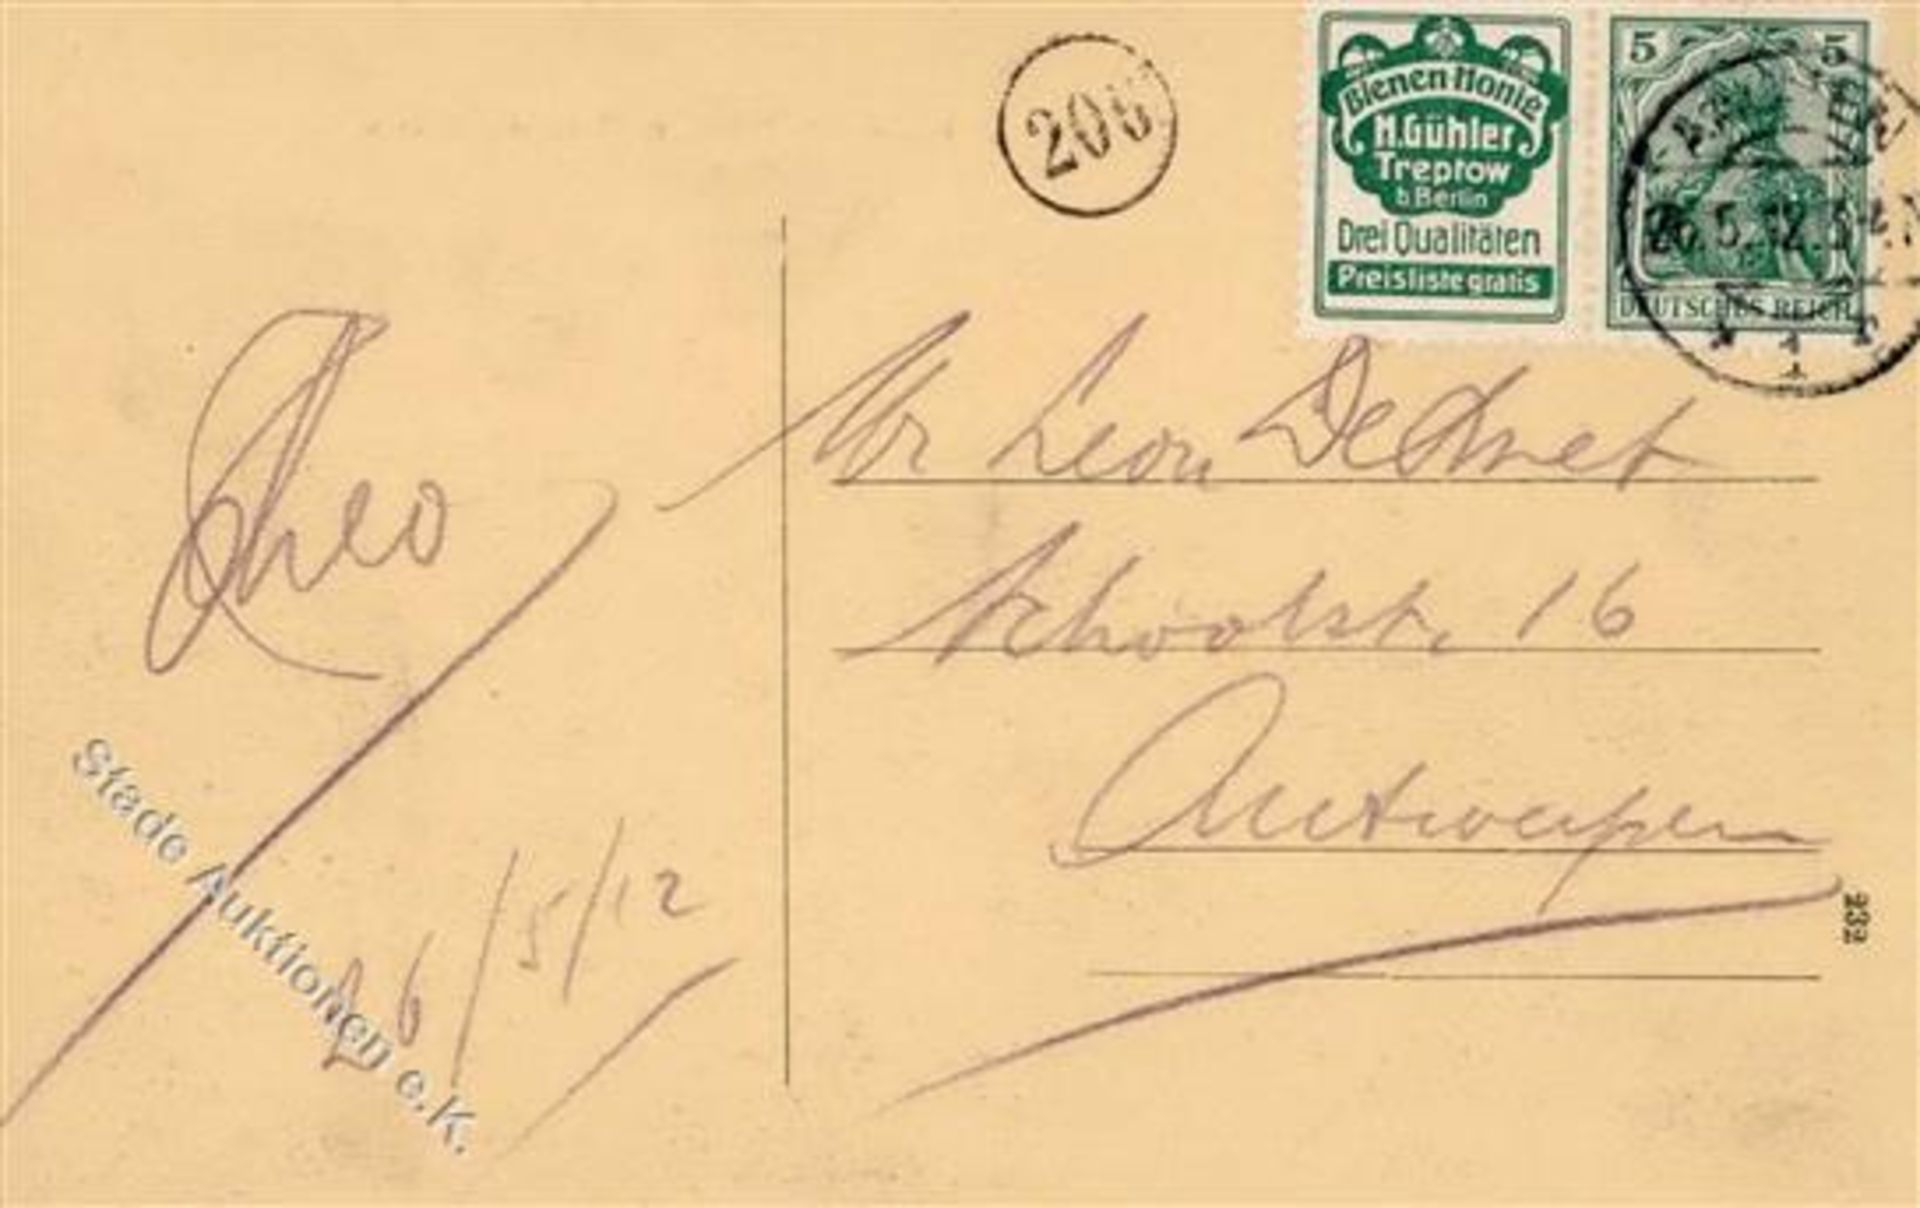 206
Bienen Honig
H. Gühler
Treptow
b. Berlin
Drei Qualitäten
Preisliste gratis
5 5
DEUTSCHES REICH
26.5.12.
Theo
26/5/12
Mr Leon De Smet
Schoolst. 16
Antwerpen
232
Stade Auktionen e.K.